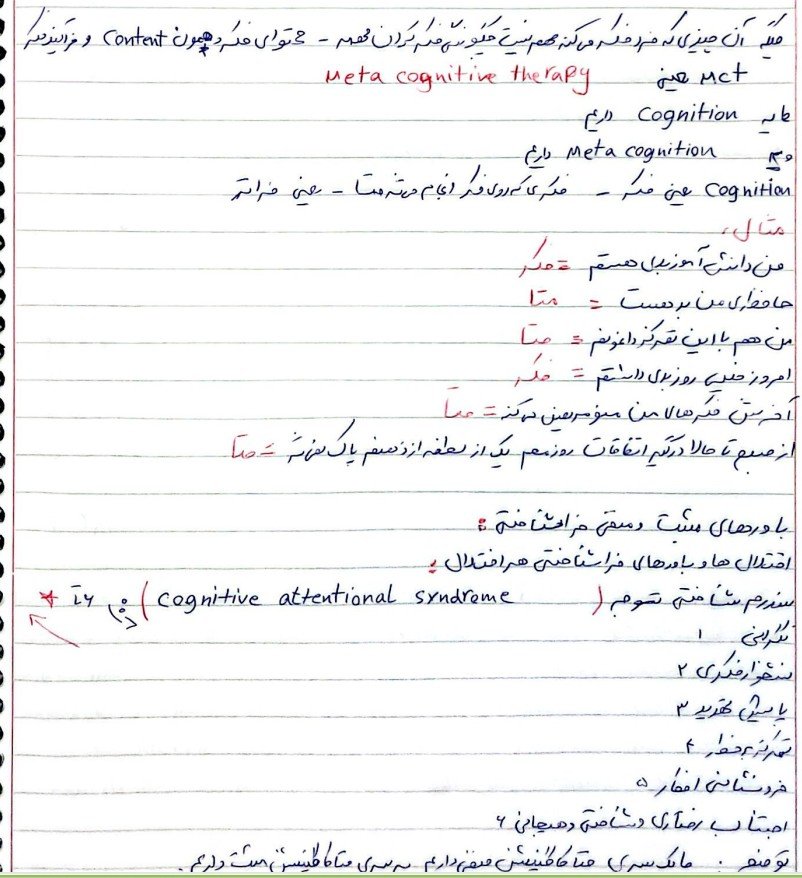 میگه آن چیزی که فرد فکر می‌کنه مهم نیست چگونگی فکر کردن مهمه - محتوای فکر و همون Content و فرآیند فکر
MCT یعنی Meta cognitive therapy
ما یه Cognition داریم
و یه Meta cognition داریم
Cognition یعنی فکر - فکری که روی فکر انجام میشه متا - یعنی فراتر
مثال:
من دانش آموز بدی هستم = فکر
حافظه‌ی من بد است = متا
من هم با این تمرکز داغونم = متا
امروز خیلی روز بدی داشتم = فکر
آخرش فکرهای من منو مریض می‌کنه = متا
از صبح تا حالا درگیر اتفاقات روزمم یک از لحظه از ذهنم پاک نمیشه = متا
باورهای مثبت و منفی فراشناختی:
اختلال ها و باورهای فراشناختی هر اختلال:
سندرم شناختی توجهی (cognitive attentional syndrome)
نگرانی ۱
نشخوار فکری ۲
پایش تهدید ۳
تمرکز بر خطر ۴
فرونشانی افکار ۵
اجتناب رفتاری و شناختی و هیجانی ۶
توضیح: ما یک سری متاکاگنیشن منفی داریم یه سری متاکاگنیشن مثبت داریم.